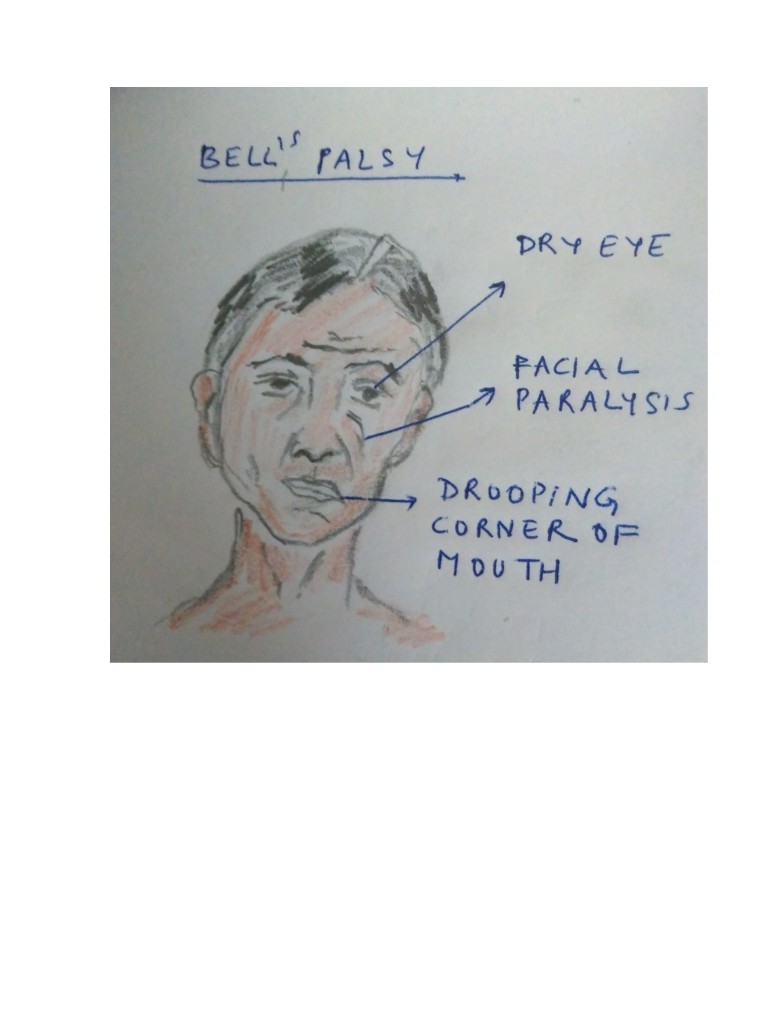 BELL'S PALSY
DRY EYE
FACIAL
PARALYSIS
DROOPING
CORNER OF
MOUTH